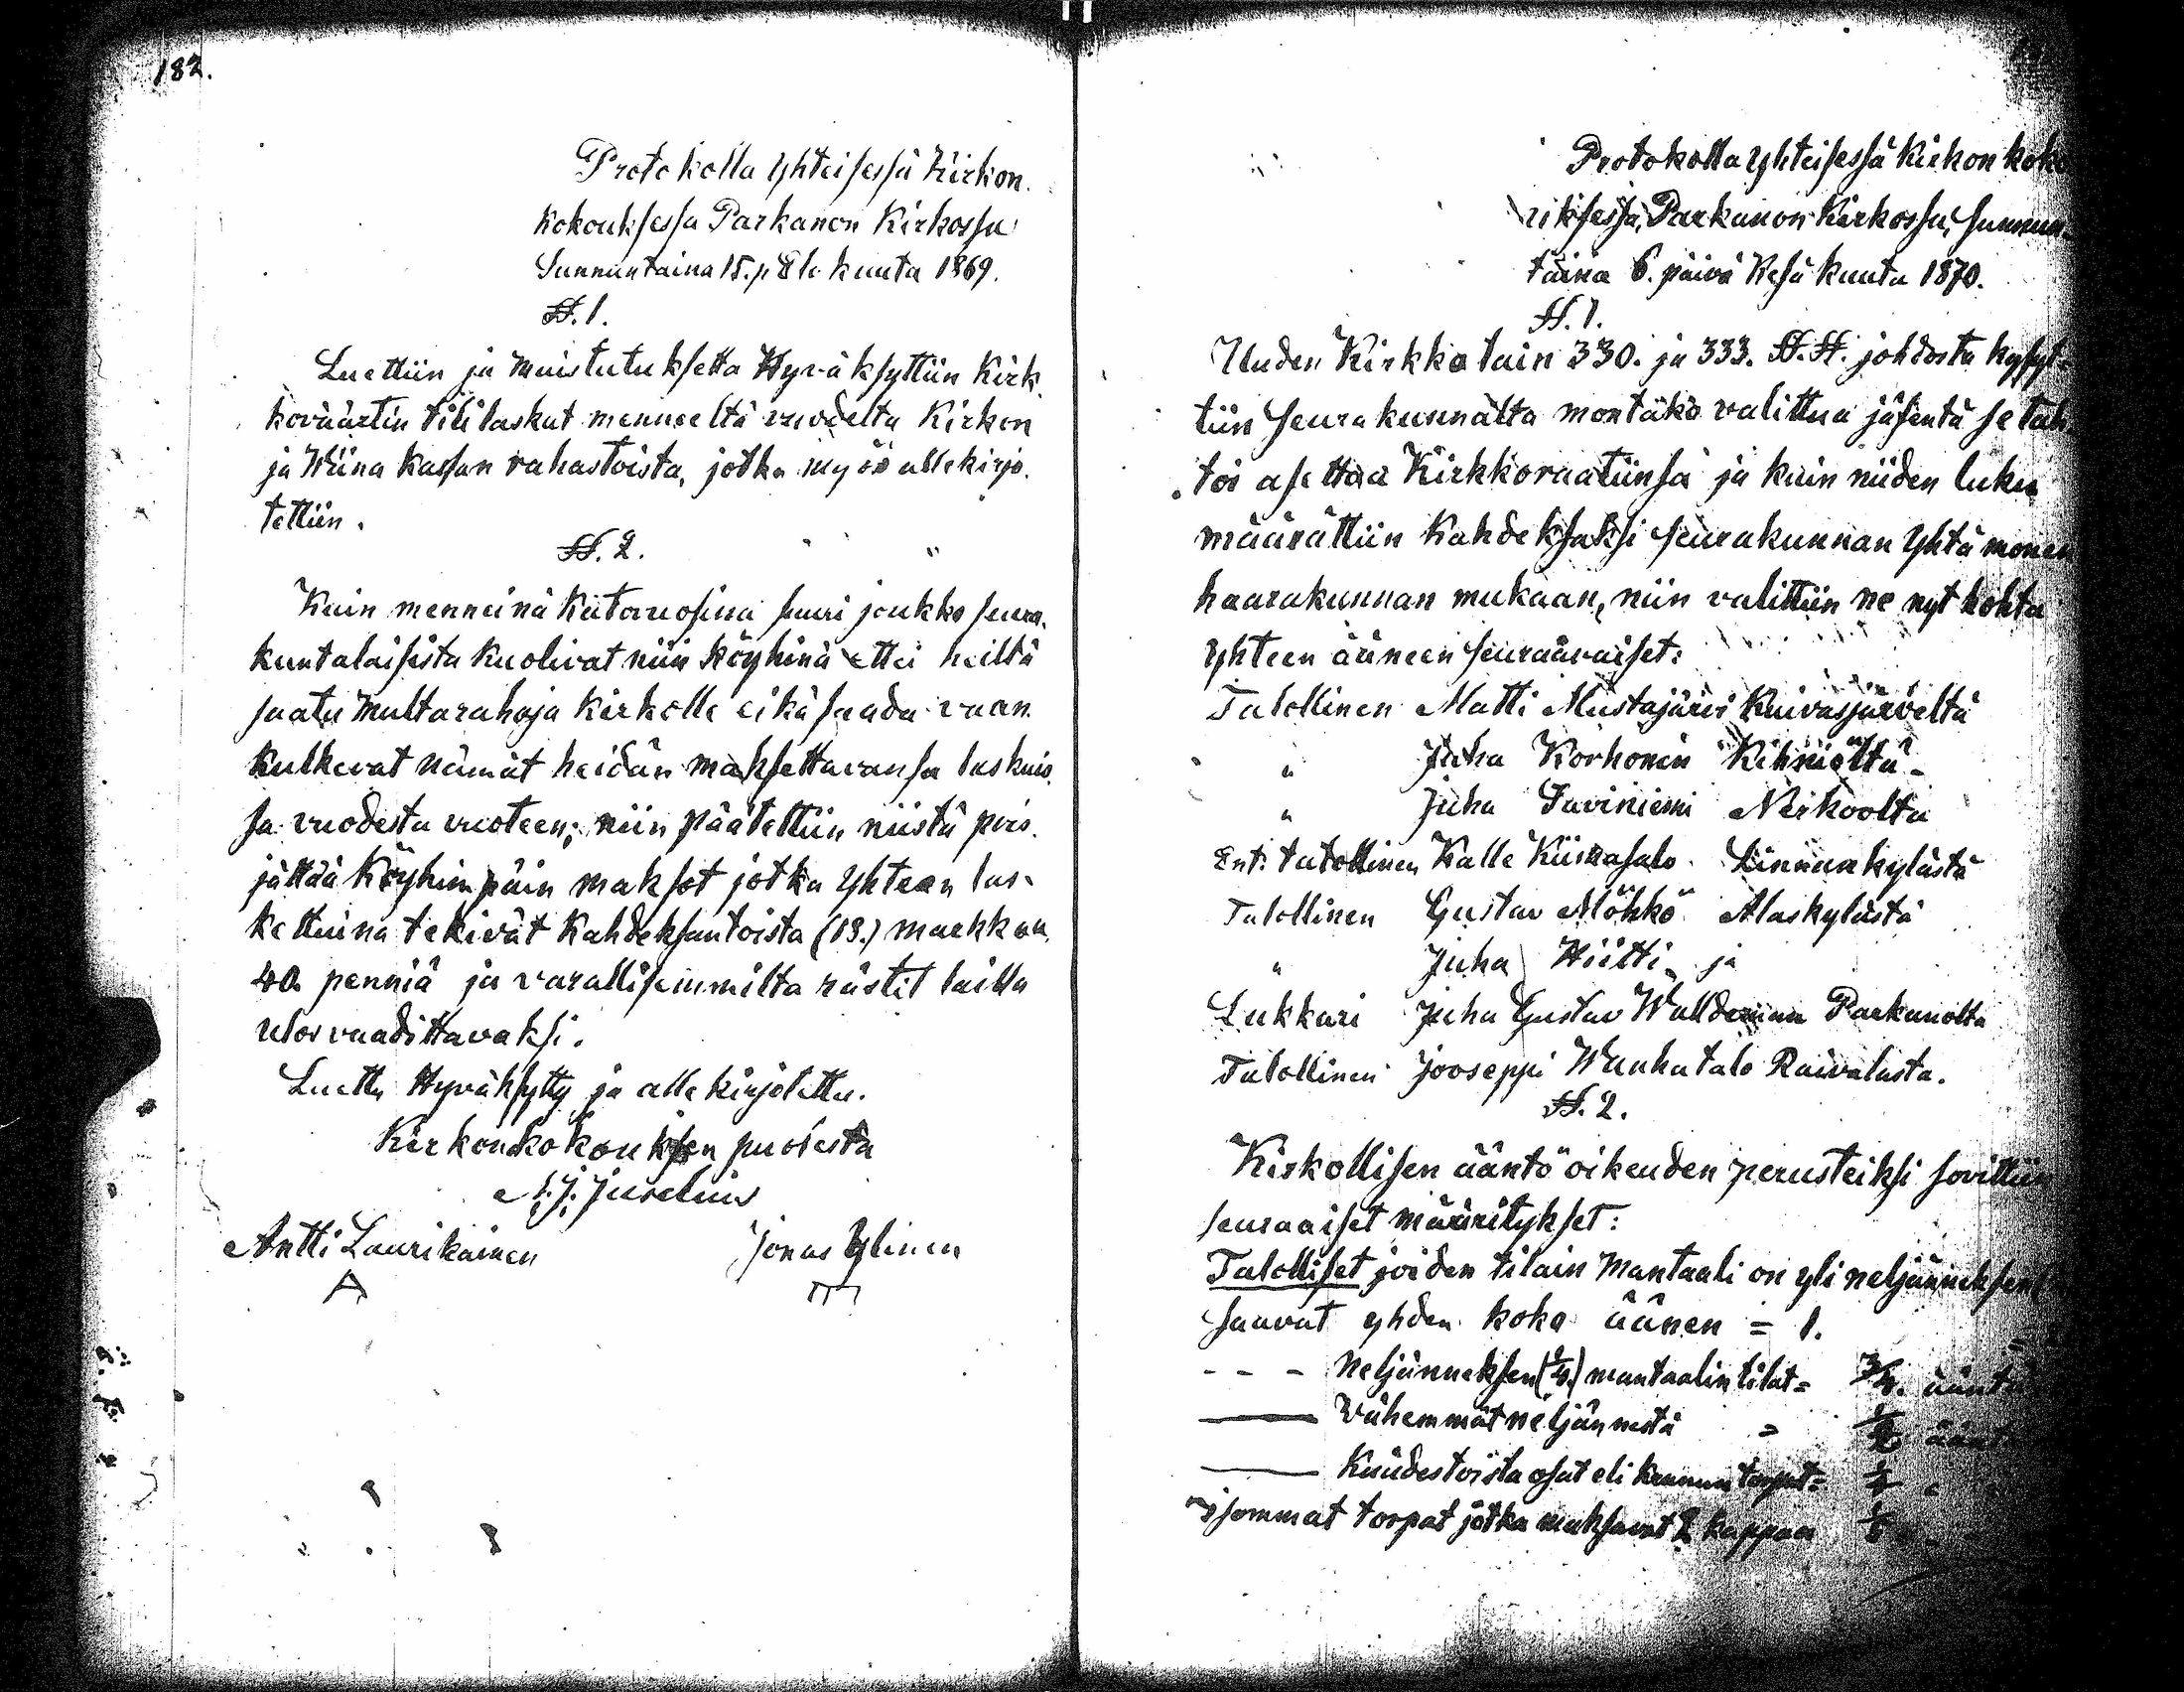 182.
Protokolla Yhteisessä Kirkon
kokouksessa Parkanon Kirkossa
Sunnuntaina 15. p. Elo kuuta 1869.
§§. 1.
Luettiin ja muistutuksetta Hyväksyttiin Kirk
koväärtin tililaskut menneeltä vuodelta Kirkon
ja Wiina Kassan rahastoista, jotka myös allekirjo
tettiin.
§§. 2.
Kuin menneinä Katovuosina suuri joukko seura
kuntalaisista kuolivat niin köyhinä ettei heiltä
saatu multarahoja kirkolle eikä saada vaan
kulkevat nämät heidän maksettavansa laskuis
sa vuodesta vuoteen; niin päätettiin niistä pois
jättää Köyhimpäin maksot jotka Yhteen las-
kettuina tekivät kahdeksantoista (18.) markkaa
40. penniä ja varallisemmilta rästit lailla
ulosvaadittavaksi.
Luettu Hyväksytty ja alle kirjoitettu.
Kirkonkokouksen puolesta
Juselius
Antti Laurikainen Jonas Ylinen
Protokolla Yhteisessä Kirkon koko
uksessa, Parkanon Kirkossa, sunnun
taina 6. päivä Kesä kuuta 1870.
§§. 1.
Uuden Kirkko lain 330. ja 333. §§. §§. johdosta kysyt-
tiin seurakunnalta montako valittua jäsentä se tah
toi asettaa Kirkkoraatiinsa ja kuin niiden luku
määrättiin Kahdeksaksi seurakunnan Yhtä monen
haarakunnan mukaan, niin valittiin ne nyt kohta
Yhteen ääneen seuraavaiset:
Talollinen Matti Mustajärvi Kuivasjärveltä
" Juha Korhonen Kihniöltä
" Juha Saviniemi Nerkoolta
Ent. talollinen Kalle Kiinasalo Linnankylästä
Talollinen Gustav Möhkö Alaskylästä
" Juha Hiitti ja
Lukkari Juha Gustav Walldemian Parkanolta
Talollinen Jooseppi Wanhatalo Raivalasta.
§§. 2.
Kirkollisen ääntö oikeuden perusteiksi sovittiin
seuraaiset määritykset:
Talolliset joiden tilain Mantaali on yli neljänneksen
saavat yhden koko äänen = 1.
- - - Neljänneksen (1/4.) mantaalin tilat = 3/4. ääntä
——— Vähemmät neljännestä = 1/2 ääntä
——— Kuudestoista osat eli Kruunun torpat =
isommat torpat jotka maksavat 2 kappaa